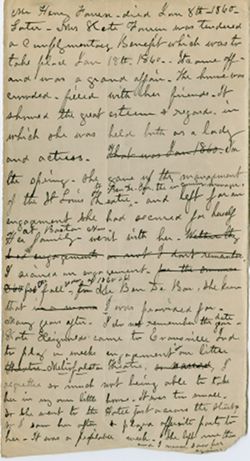 Mr Henry Farren - died Jan 8th - 1860 -
Later - Mrs Kate Farren was tendered
a Complimentary Benefit which was to
take place Jan 12th, 1860. It came off -
and was a grand affair. The house was
crowded - filled with her friends. It
showed the great esteem & regard, in
which she was held both as a lady
and actress. That was Jan 1860. In
the spring - she gave up the management
of the St Louis Theatre, and left for an
engagement she had secured for herself
at Boston
Her family went with her.
I secured an engagement
fall Ben De Bar. She knew
that I was provided for -
Many years after - I do not remember the date
Kate came to Evansville Ind
to play a weeks engagement in little
Metropolitan Theatre. I
regretted so much not being able to take
her in my own little home. It was too small.
So she went to the Hotel just across the street
so I saw her often & played opposite parts to
her. It was a pleasant week. She left me then
and I never saw her
again.